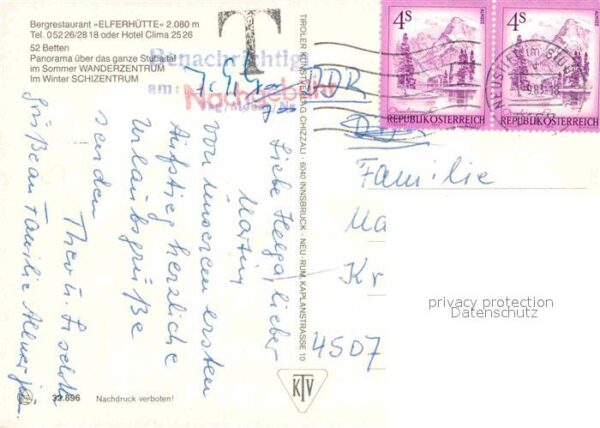 Bergrestaurant »ELFERHÜTTE« 2.080 m
Tel. 05226/2818 oder Hotel Clima 2526
52 Betten
Panorama über das ganze Stubaital
im Sommer WANDERZENTRUM
Im Winter SCHIZENTRUM
T
Benachrichtigt
am:
Nachgebühr
DDR
4S
ALMSEE
REPUBLIK ÖSTERREICH
4S
ALMSEE
REPUBLIK ÖSTERREICH
NEUSTIFT im STUB
9.83-18
TIROLER KUNSTVERLAG CHIZZALI · 6040 INNSBRUCK - NEU-RUM, KAPLANSTRASSE 10
Liebe Helga, lieber
Martin,
von unserem ersten
Aufstieg herzliche
Urlaubsgrüße
senden
Theo u.
Grüße an Familie
Familie
Ma
Kr
4507
privacy protection
Datenschutz
KTV
33.896 Nachdruck verboten!